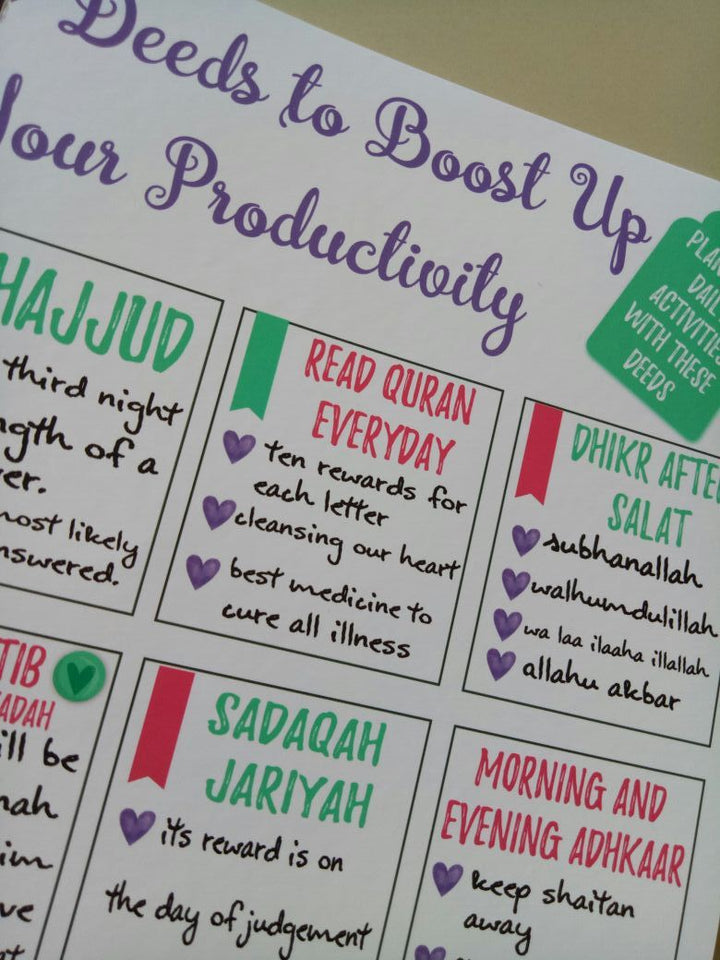 Deeds to Boost Up
Your Productivity
PLAN
DAILY
ACTIVITIES
WITH THESE
DEEDS
HAJJUD
third night
of a
most likely
READ QURAN
EVERYDAY
ten rewards for
each letter
cleansing our heart
best medicine to
cure all illness
DHIKR AFTER
SALAT
subhanallah
walhumdulillah
wa laa ilaaha illallah
allahu akbar
TIB
ADAH
be
SADAQAH
JARIYAH
its reward is on
the day of judgement
MORNING AND
EVENING ADHKAAR
keep shaitan
away